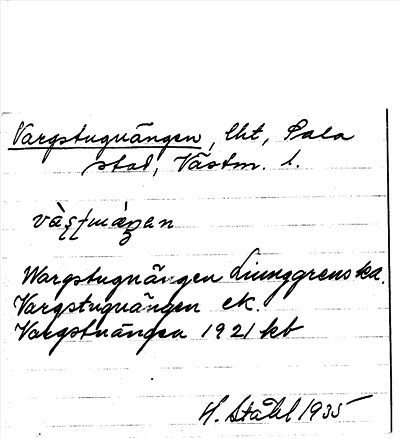 Vargstuguängen, lht, Sala
stad, Västm. l.
Wargstuguängen Liunggrenska.
Vargstuguängen ek.
Vargstuängen 1921 kb
H. Ståhl 1935